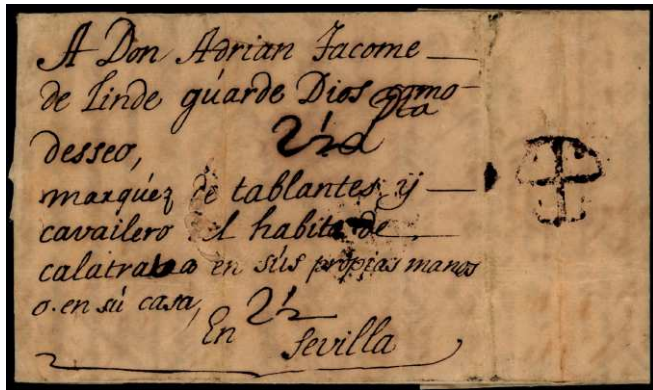 A Don Adrian Jacome
de Linde gúarde Dios como
Pta
desseo,
2½a
marqúez de tablantes, y
cavailero del habito de
calatraba en sús propias manos
o. en sú casa,
2½
En Sevilla